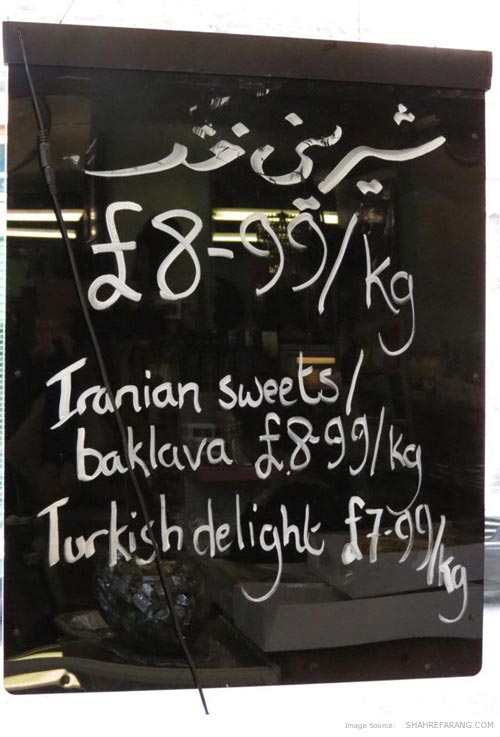 شیرینی
£8-99/kg
Iranian sweets/
baklava £8-99/kg
Turkish delight £7-99/kg
Image-Source: SHAHREFARANG.COM